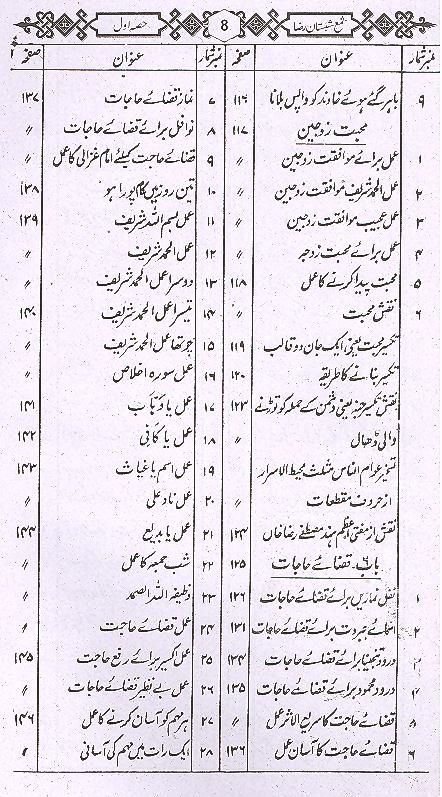 شمع شبستان رضا 8 حصہ اول
نمبر شمار عنوان صفحہ
۹ باہر گئے ہوئے خاوند کو واپس بلانا ۱۱۶
محبت زوجین ۱۱۷
۱ عمل برائے موافقت زوجین ״
۲ عمل الحمد شریف موافقت زوجین ״
۳ عمل عجیب موافقت زوجین ״
۴ عمل برائے محبت زوجہ ״
۵ محبت پیدا کرنے کا عمل ۱۱۸
۶ نقش محبت ״
تکسیر محبت یعنی ایک جان دو قالب ۱۱۹
تکسیر بنانے کا طریقہ ۱۲۰
نقش تکسیر یعنی دشمن کے حملہ کو توڑنے ۱۲۳
والی ڈھال ״
تسخیر عوام الناس مثلث محیط الاسرار
از حروف مقطعات ״
نقش از مفتی اعظم ہند مصطفے رضا خاں ۱۲۴
باب ۶ قضائے حاجات ۱۲۵
۱ نفل نمازیں برائے قضائے حاجات ۱۲۶
۲ برائے قضائے حاجات ۱۳۱
۳ درود تنجینا برائے قضائے حاجات ۱۳۴
۴ درود محمود برائے قضائے حاجات ۱۳۵
۵ قضائے حاجت کا سریع الاثر عمل ״
۶ قضائے حاجت کا آسان عمل ۱۳۶
نمبر شمار عنوان صفحہ
۷ نماز قضائے حاجات ۱۳۷
۸ نوافل برائے قضائے حاجات ״
۹ قضائے حاجت کیلئے امام غزالی کا عمل ״
۱۰ تین روز میں کام پورا ہو ۱۳۸
۱۱ عمل بسم اللہ شریف ۱۳۹
۱۲ عمل الحمد شریف ״
۱۳ دوسرا عمل الحمد شریف ״
۱۴ تیسرا عمل الحمد شریف ۱۴۰
۱۵ چوتھا عمل الحمد شریف ״
۱۶ عمل سورہ اخلاص ״
۱۷ عمل یا وہاب ۱۴۱
۱۸ عمل یا کافی ۱۴۲
۱۹ عمل اسم یا غیاث ۱۴۳
۲۰ عمل ناد علی ״
۲۱ عمل یا بدیع ۱۴۴
۲۲ شب جمعہ کا عمل ״
۲۳ وظیفہ اللہ الصمد ״
۲۴ عمل قضائے حاجت ״
۲۵ عمل اکسیر برائے رفع حاجت ۱۴۵
۲۶ عمل بے نظیر قضائے حاجات ״
۲۷ ہر مہم کو آسان کرنے کا عمل ۱۴۶
۲۸ ایک رات میں مہم کی آسانی ״